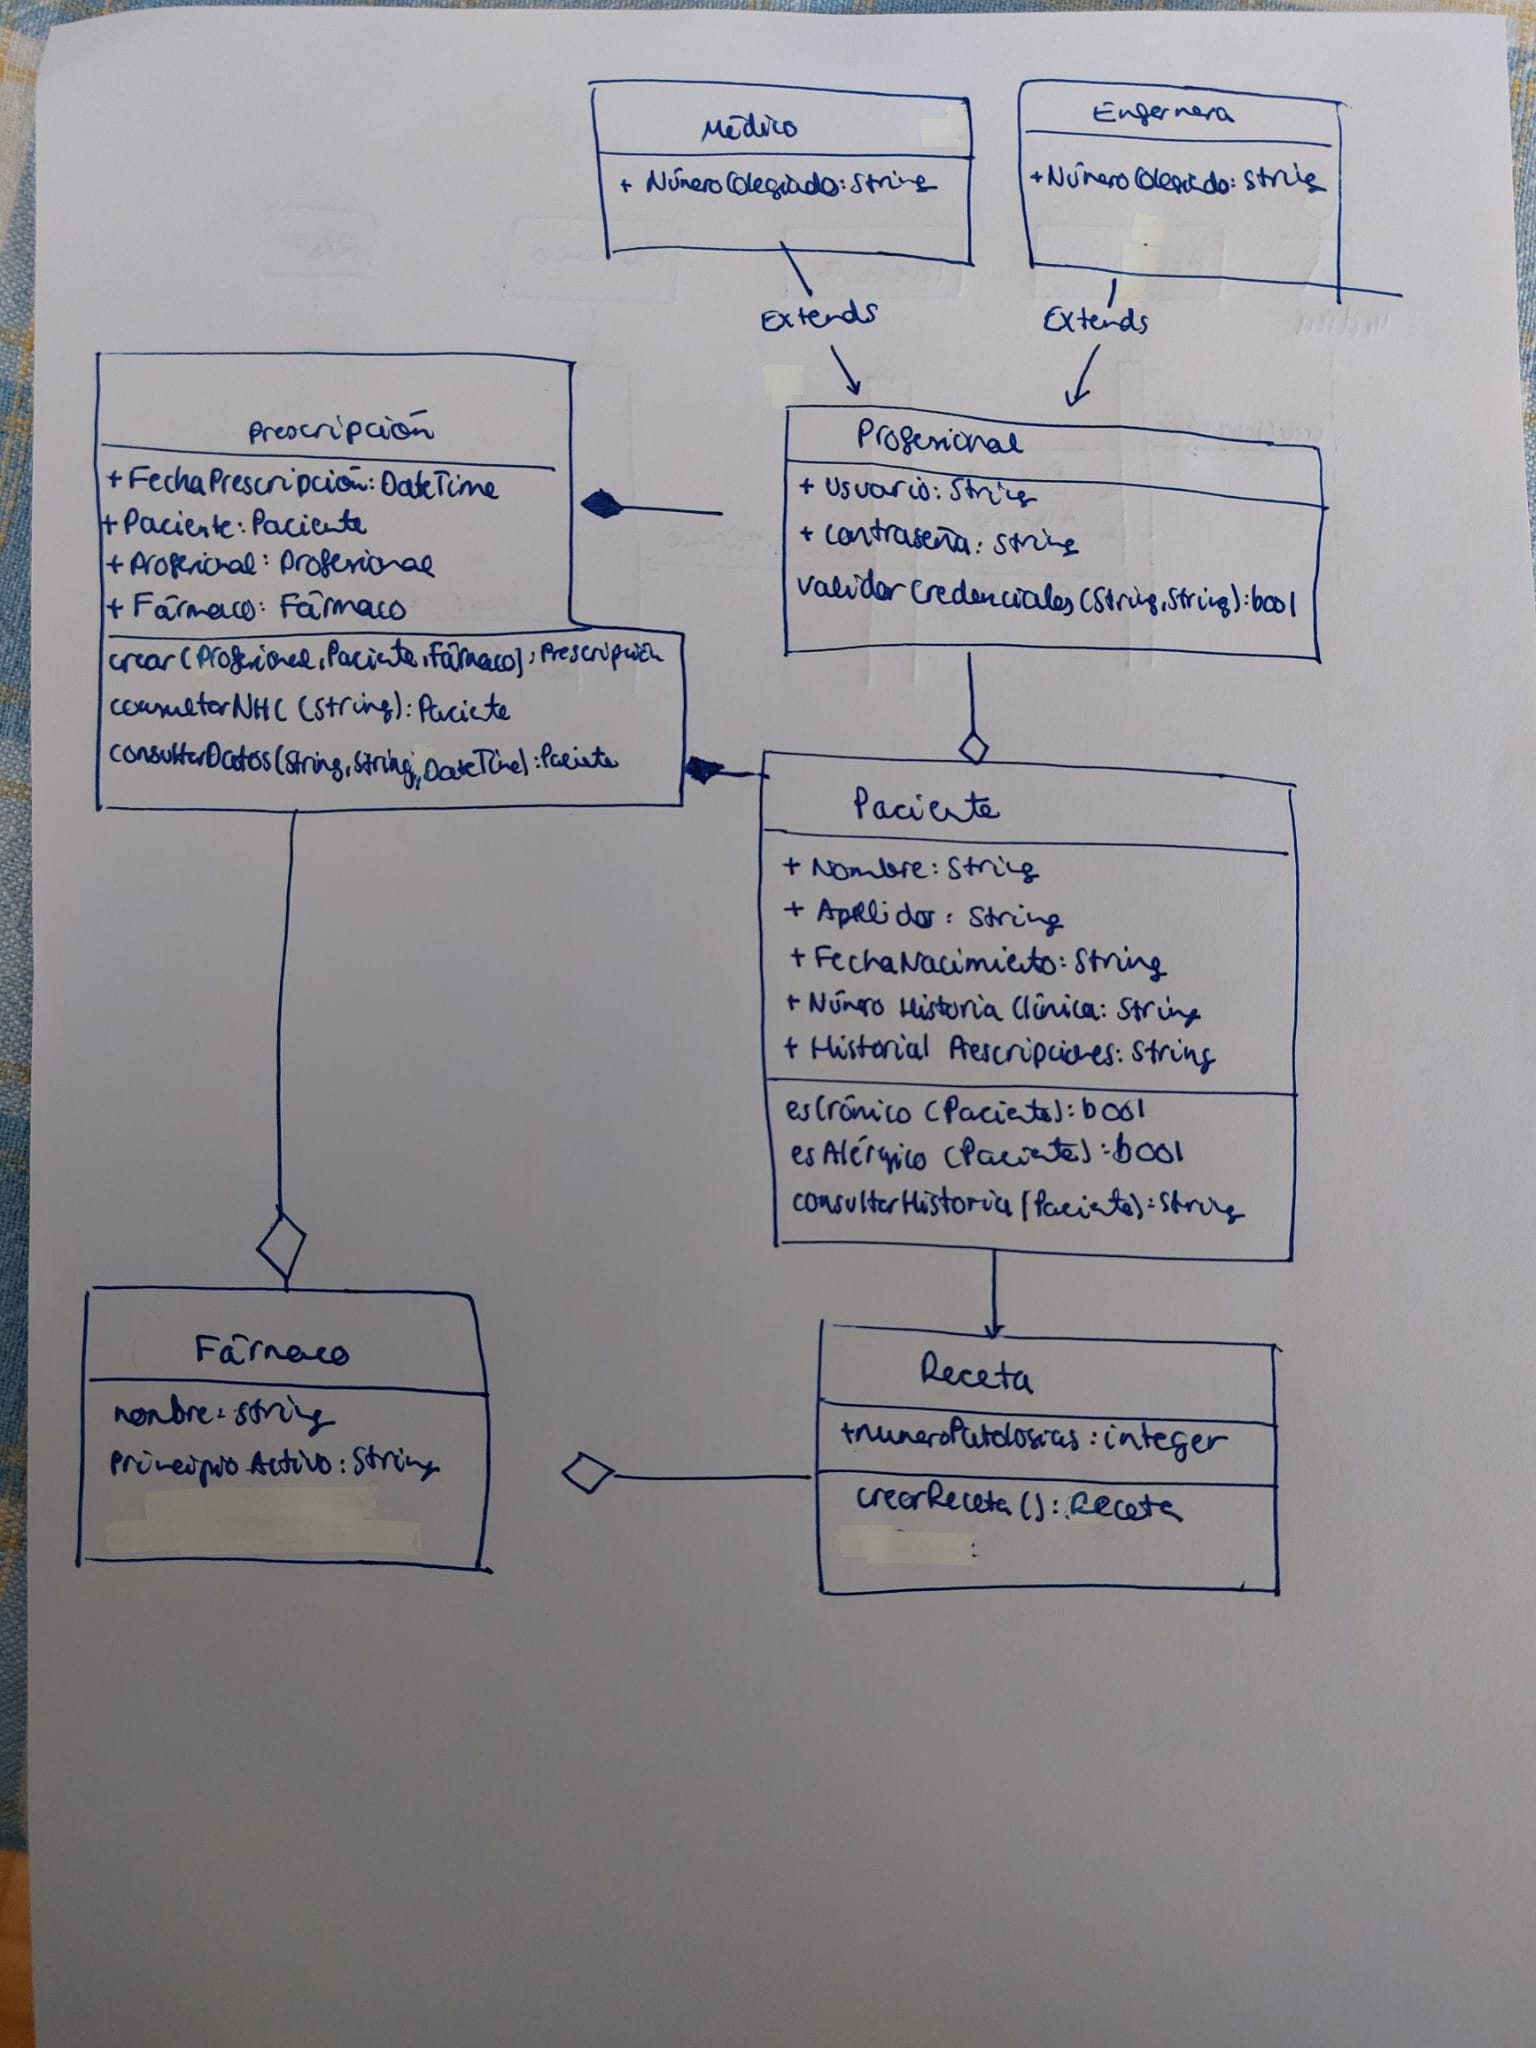 Médico
+ NúmeroColegiado: String
Enfermera
+ NúmeroColegiado: String
Extends
Extends
Prescripción
+ FechaPrescripción: DateTime
+ Paciente: Paciente
+ Profesional: Profesional
+ Fármaco: Fármaco
crear (Profesional, Paciente, Fármaco): Prescripción
consultarNHC (String): Paciente
consultarDatos (String, String, DateTime): Paciente
Profesional
+ Usuario: String
+ Contraseña: String
validarCredenciales (String, String): bool
Paciente
+ Nombre: String
+ Apellidos: String
+ FechaNacimiento: String
+ Número Historia Clínica: String
+ Historial Prescripciones: String
esCrónico (Paciente): bool
esAlérgico (Paciente): bool
consultarHistoria (Paciente): String
Fármaco
nombre: String
Principio Activo: String
Receta
+numeroPatologías: integer
crearReceta (): Receta
: